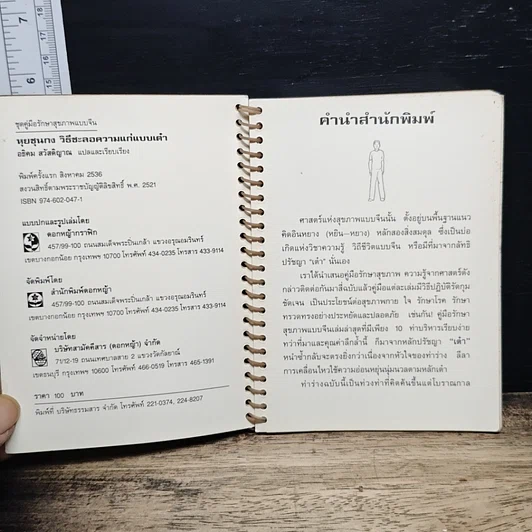 ชุดคู่มือรักษาสุขภาพแบบจีน
หุยชุนกง วิธีชะลอความแก่แบบเต๋า
อธิคม สวัสดิญาณ แปลและเรียบเรียง
พิมพ์ครั้งแรก สิงหาคม 2536
สงวนสิทธิ์ตามพระราชบัญญัติลิขสิทธิ์ พ.ศ. 2521
ISBN 974-602-047-1
แบบปกและรูปเล่มโดย
ดอกหญ้ากราฟิก
457/99-100 ถนนสมเด็จพระปิ่นเกล้า แขวงอรุณอมรินทร์
เขตบางกอกน้อย กรุงเทพฯ 10700 โทรศัพท์ 434-0235 โทรสาร 433-9114
จัดพิมพ์โดย
สำนักพิมพ์ดอกหญ้า
457/99-100 ถนนสมเด็จพระปิ่นเกล้า แขวงอรุณอมรินทร์
เขตบางกอกน้อย กรุงเทพฯ 10700 โทรศัพท์ 434-0235 โทรสาร 433-9114
จัดจำหน่ายโดย
บริษัทสามัคคีสาร (ดอกหญ้า) จำกัด
71/12-19 ถนนเทศบาลสาย 2 แขวงวัดกัลยาณ์
เขตธนบุรี กรุงเทพฯ 10600 โทรศัพท์ 466-0519 โทรสาร 465-1391
ราคา 100 บาท
พิมพ์ที่ บริษัทธรรมสาร จำกัด โทรศัพท์ 221-0374, 224-8207
คำนำสำนักพิมพ์
ศาสตร์แห่งสุขภาพแบบจีนนั้น ตั้งอยู่บนพื้นฐานแนว
คิดอินหยาง (หยิน—หยาง) หลักสองสิ่งสมดุล ซึ่งเป็นบ่อ
เกิดแห่งวิชาความรู้ วิถีชีวิตแบบจีน หรือมีที่มาจากลัทธิ
ปรัชญา "เต๋า" นั่นเอง
เราได้นำเสนอคู่มือรักษาสุขภาพ ความรู้จากศาสตร์ดัง
กล่าวติดต่อกันมาสี่ฉบับแล้วคู่มือแต่ละเล่มมีวิธีปฏิบัติรัดกุม
ชัดเจน เป็นประโยชน์ต่อสุขภาพกาย ใจ รักษาโรค รักษา
ทรวดทรงอย่างประหยัดและปลอดภัย เช่นกัน! คู่มือรักษา
สุขภาพแบบจีนเล่มล่าสุดที่มีเพียง 10 ท่าบริหารเรียบง่าย
ทว่าที่มาและคุณค่าลึกล้ำนี้ ก็มาจากหลักปรัชญา "เต๋า"
หนำซ้ำกลับจะตรงยิ่งกว่าเนื่องจากหัวใจของท่าร่าง ลีลา
การเคลื่อนไหวใช้ความอ่อนหยุ่นนุ่มนวลตามหลักเต๋า
ท่าร่างฉบับนี้เป็นท่วงท่าที่คิดค้นขึ้นแต่โบราณกาล
7
6